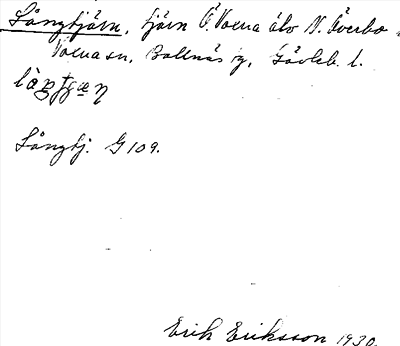 Långtjärn, tjärn Ö. Voxna älv N. Överbo
Voxna sn, Bollnäs tg, Gävleb. l.
Långtj. G 109.
Erik Eriksson 1930.